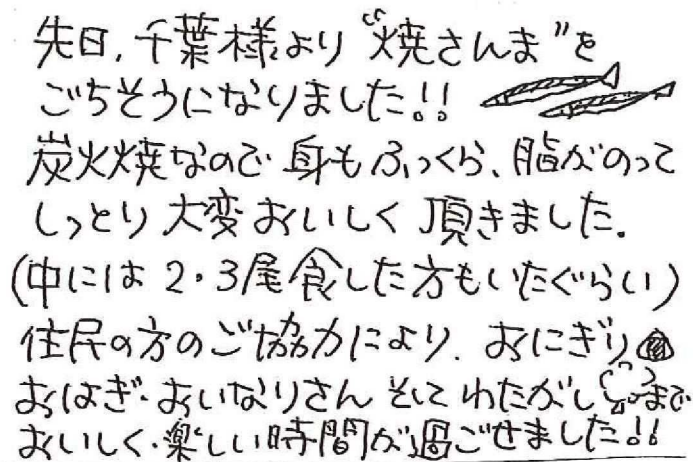 先日、千葉様より“焼さんま”を
ごちそうになりました!!
炭火焼なので身もふっくら、脂がのって
しっとり大変おいしく頂きました。
(中には2・3尾食した方もいたぐらい)
住民の方のご協力により、おにぎり
おはぎ・おいなりさんそしてわたがしまで
おいしく・楽しい時間が過ごせました!!